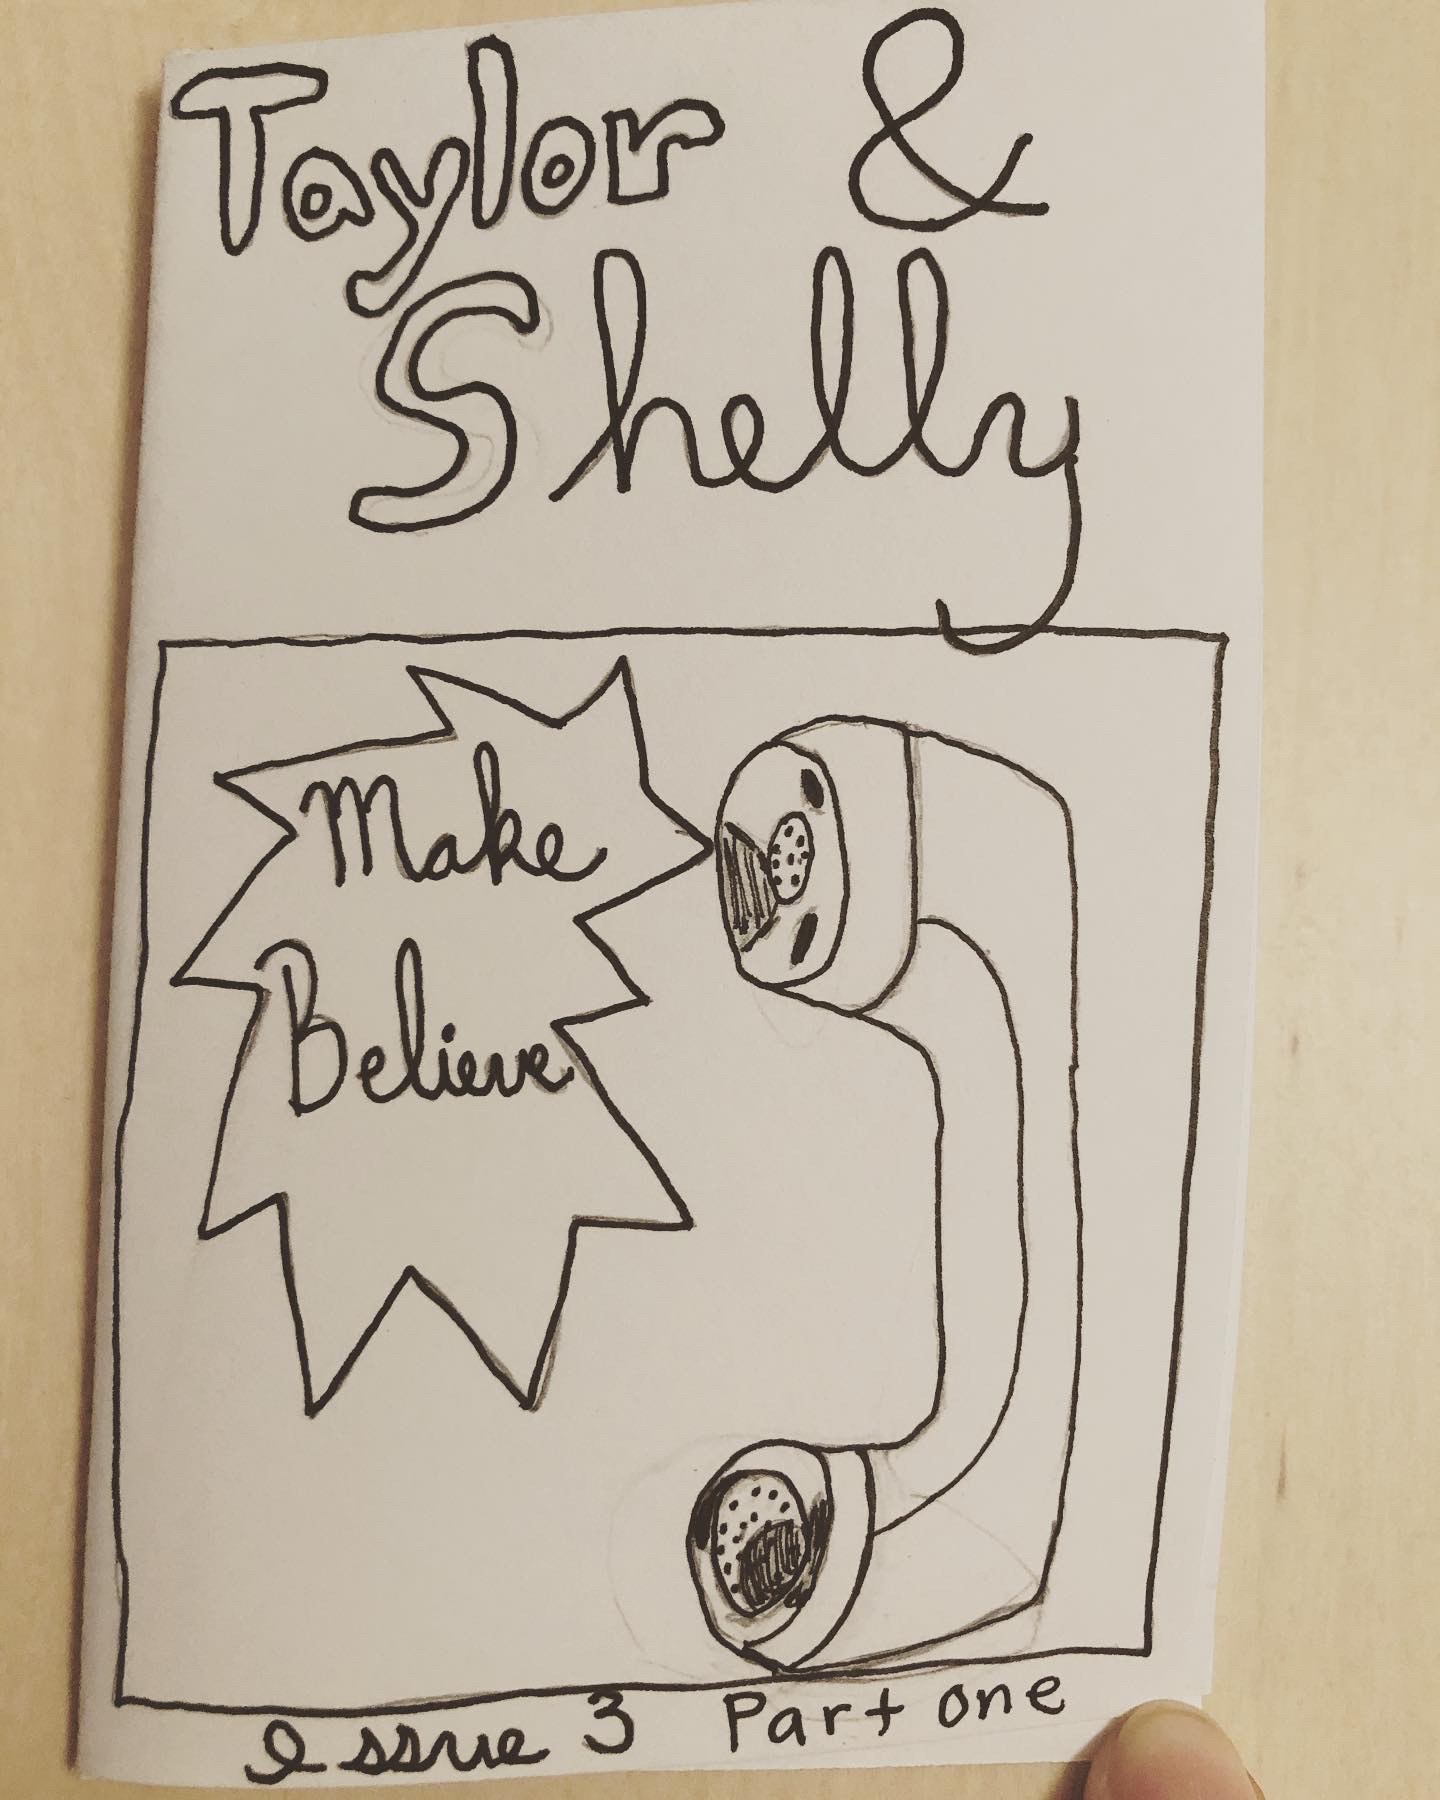 Taylor &
Shelly
Make
Believe
Issue 3 Part one